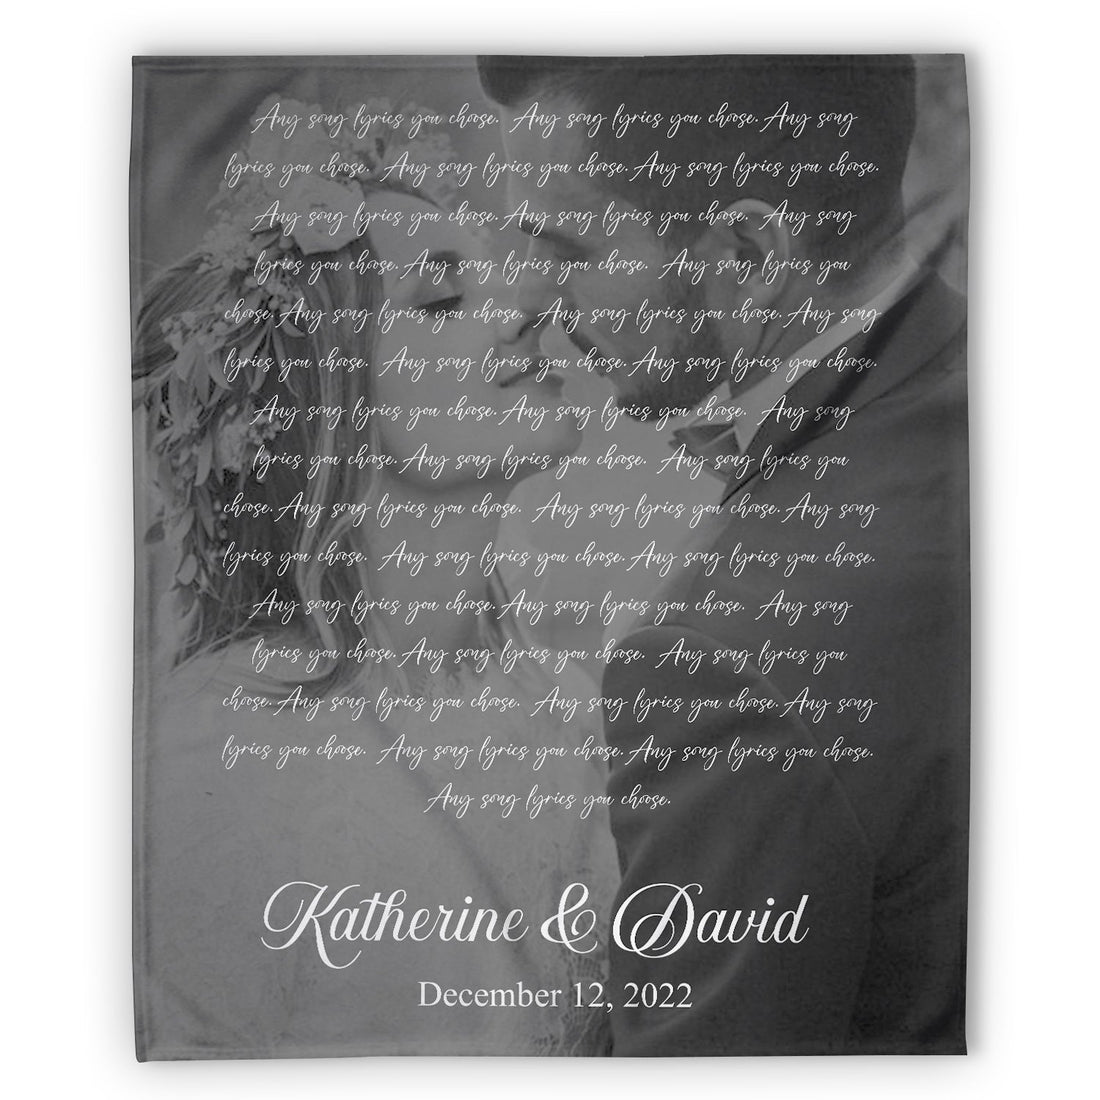 Any song lyrics you choose. Any song lyrics you choose. Any song
lyrics you choose. Any song lyrics you choose. Any song lyrics you choose.
Any song lyrics you choose. Any song lyrics you choose. Any song
lyrics you choose. Any song lyrics you choose. Any song lyrics you
choose. Any song lyrics you choose. Any song lyrics you choose. Any song
lyrics you choose. Any song lyrics you choose. Any song lyrics you choose.
Any song lyrics you choose. Any song lyrics you choose. Any song
lyrics you choose. Any song lyrics you choose. Any song lyrics you
choose. Any song lyrics you choose. Any song lyrics you choose. Any song
lyrics you choose. Any song lyrics you choose. Any song lyrics you choose.
Any song lyrics you choose. Any song lyrics you choose. Any song
lyrics you choose. Any song lyrics you choose. Any song lyrics you
choose. Any song lyrics you choose. Any song lyrics you choose. Any song
lyrics you choose. Any song lyrics you choose. Any song lyrics you choose.
Any song lyrics you choose.
Katherine & David
December 12, 2022